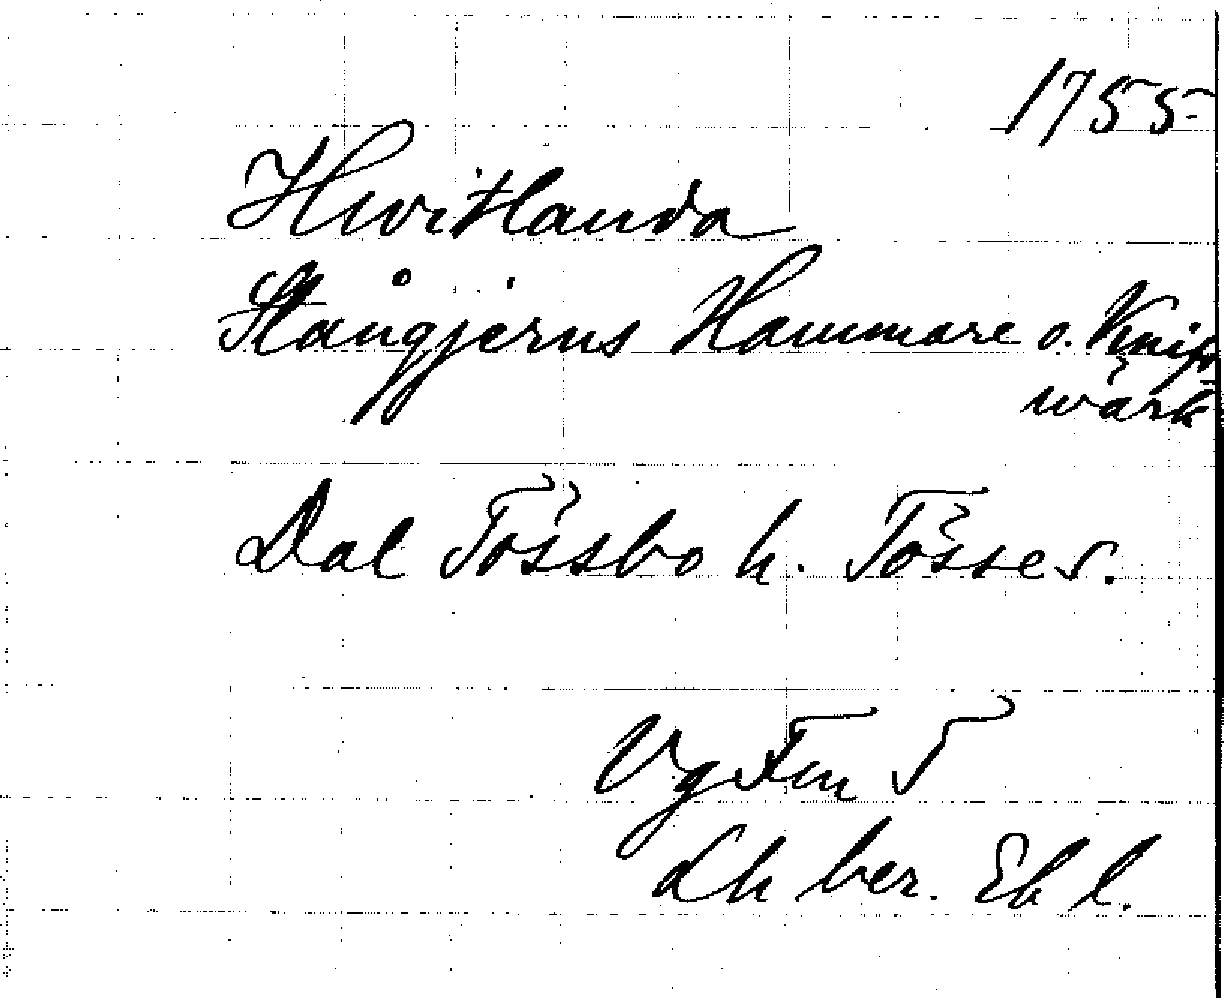 1755
Hwitlanda
Stångjerns Hammare o. Knip
wärk
Dal Tössbo h. Tösse s.
Vg Fm T
Lh ber. Eb l.